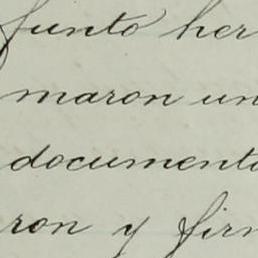 junto her
maron un
documento
ron y firm